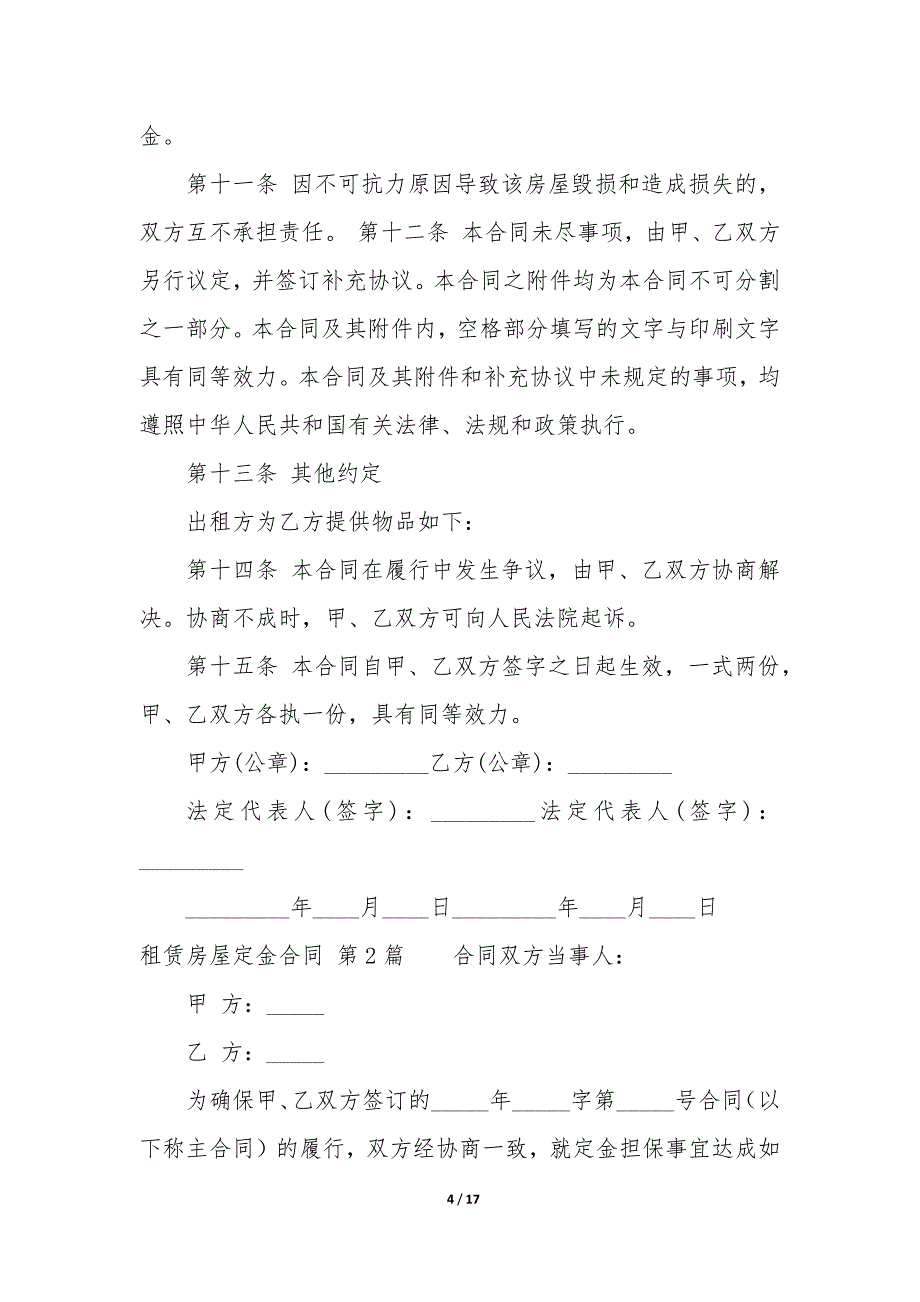 金。
第十一条 因不可抗力原因导致该房屋毁损和造成损失的，
双方互不承担责任。 第十二条 本合同未尽事项，由甲、乙双方
另行议定，并签订补充协议。本合同之附件均为本合同不可分割
之一部分。本合同及其附件内，空格部分填写的文字与印刷文字
具有同等效力。本合同及其附件和补充协议中未规定的事项，均
遵照中华人民共和国有关法律、法规和政策执行。
第十三条 其他约定
出租方为乙方提供物品如下：
第十四条 本合同在履行中发生争议，由甲、乙双方协商解
决。协商不成时，甲、乙双方可向人民法院起诉。
第十五条 本合同自甲、乙双方签字之日起生效，一式两份，
甲、乙双方各执一份，具有同等效力。
甲方(公章)：_________乙方(公章)：_________
法定代表人(签字)：_________法定代表人(签字)：
_________
_________年____月____日_________年____月____日
租赁房屋定金合同 第2篇 合同双方当事人：
甲 方：_____
乙 方：_____
为确保甲、乙双方签订的_____年_____字第_____号合同（以
下称主合同）的履行，双方经协商一致，就定金担保事宜达成如
4 / 17